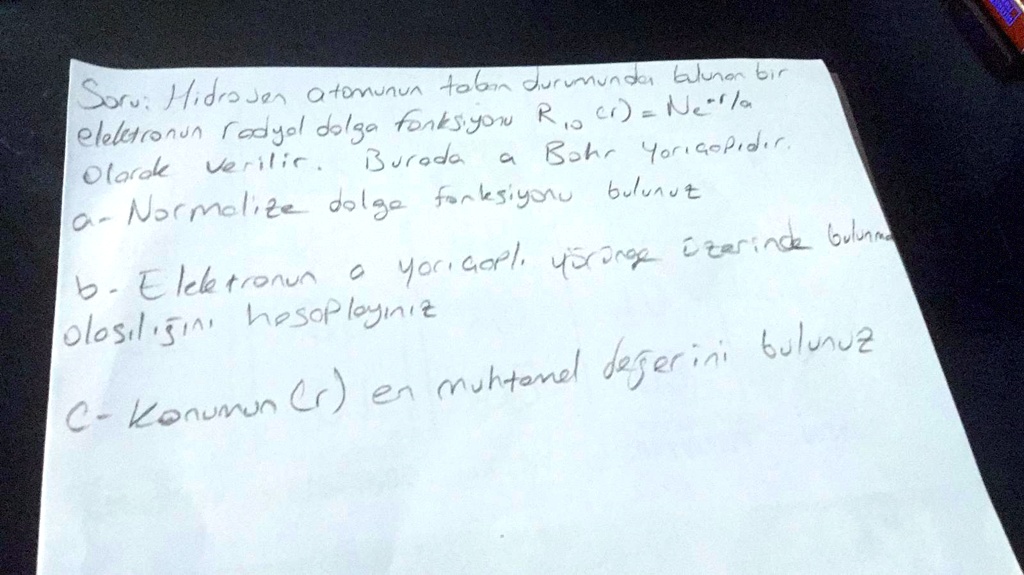 Soru: Hidrojen atomunun taban durumunda bulunan bir
elektronun radyal dalga fonksiyonu R₁₀ (r) = Ne^-r/a
Olarak verilir. Burada a Bohr yarıçapıdır.
a- Normalize dalga fonksiyonu bulunuz
b- Elektronun a yarıçaplı yörünge üzerinde bulunma
olasılığını hesaplayınız
C- Konumun (r) en muhtemel değerini bulunuz